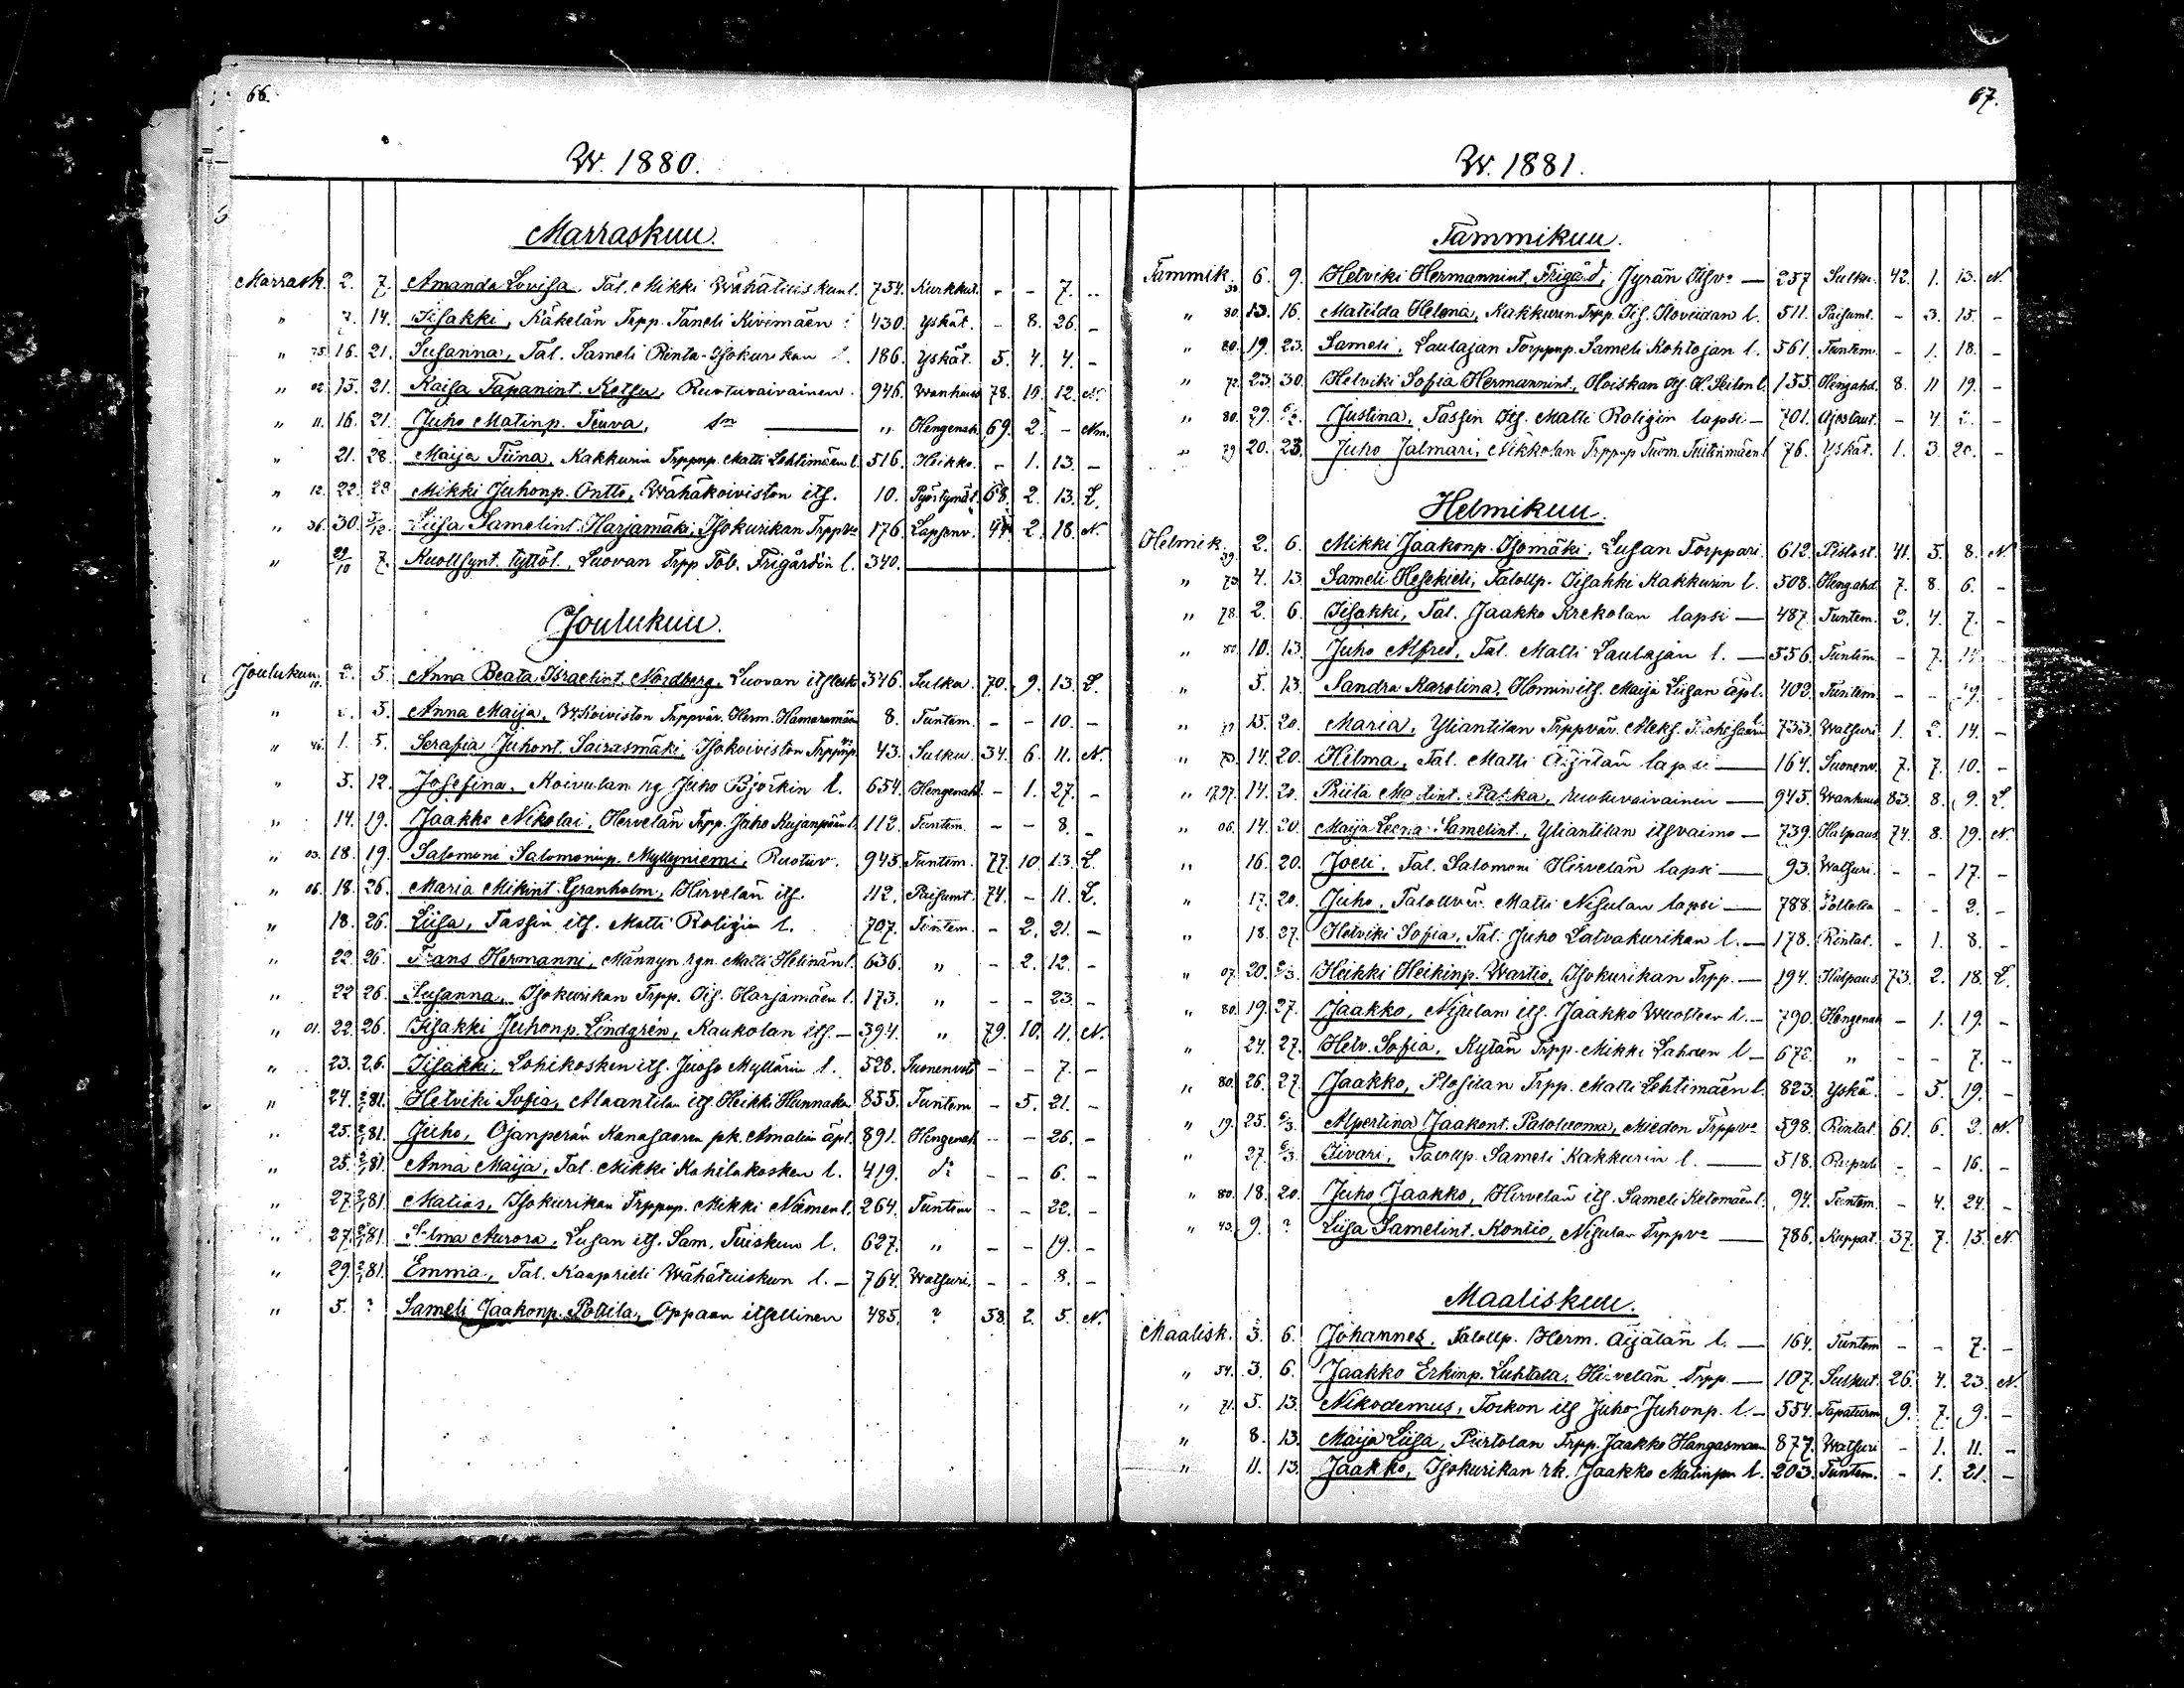 66.
W. 1880.
Marraskuu.
Marrask. 2. 7. Amanda Lovisa, Tal. Mikki Wähätuiskun l. 754. Kurkkut. - - 7. -
" 7. 14. Iisakki, Käkelän Trpp. Taneli Kivimäen 430. Yskät. - 8. 26. -
" 75. 16. 21. Susanna, Tal. Sameli Rinta-Isokurikan l. 186. Yskät. 5. 4. 4. -
" 02. 15. 21. Kaisa Tapanint. Ketsu, Ruotuvaivainen. 946. Wanhuus 78. 10. 12. N.
" 11. 16. 21. Juho Matinp. Teuva, sn — " Hengenah. 69. 2. - Nm.
" 21. 28. Maija Tiina, Kakkurin Trppnp. Matti Lehtimäen l. 516. Heikko. - 1. 13. -
" 12. 22. 28. Mikki Juhonp. Ontto, Wähäkoiviston its. 10. Pyörtymät. 68. 2. 13. L.
" 36. 30. 5/12. Liisa Samelint. Harjamäki, Isokurikan Trppva 176. Lapsenv. 44. 2. 18. N.
" 29/10 7. Kuollsynt. tyttöl., Luovan Trpp Tob. Frigårdin l. 340.
Joulukuu.
Joulukuu. 2. 5. Anna Beata Israelint. Nordberg, Luovan itsleski 346. Sulku. 70. 9. 13. L.
" 5. Anna Maija, W.Koiviston Trppväv. Herm. Hamaramäen 8. Tuntem. - - 10. -
" 46. 1. 5. Serafia Juhont. Sairasmäki, Isokoiviston Trppnp. 43. Sulku. 34. 6. 11. N.
" 5. 12. Josefina, Koivulan rg Juho Björkin l. 654. Hengenahd. - 1. 27. -
" 14. 19. Jaakko Nikolai, Hervelän Trpp. Juho Kujanpään l. 112. Tuntem. - - 8. -
" 03. 18. 19. Salomoni Salomoninp. Myllyniemi, Ruotuv. 945. Tuntem. 77. 10. 13. L.
" 06. 18. 26. Maria Mikint. Granholm, Hirvelän its. 112. Paisumt. 74. - 11. L.
" 18. 26. Liisa, Tassin its. Matti Roligin l. 707. Tuntem. - 2. 21. -
" 22. 26. Frans Hermanni, Männyn rgn. Matti Helinän l. 636. " - 2. 12. -
" 22. 26. Susanna, Isokurikan Trpp. Iis. Harjamäen l. 173. " - - 23. -
" 01. 22. 26. Iisakki Juhonp. Lindgrén, Kaukolan its. — 394. " 79. 10. 11. N.
" 23. 26. Iisakki, Lohikosken its. Juoso Myllärin l. 528. Suonenveto - - 7. -
" 24. 2/1 81. Hetviki Sofia, Alaantilan its. Heikki Hunnakon 855. Tuntem - 5. 21. -
" 25. 2/1 81. Juho, Ojanperän Kanasaaren pk. Amalian äpl. 891. Hengenah. - - 26. -
" 25. 2/1 81. Anna Maija, Tal. Mikki Kohilakosken l. 419. do - - 6. -
" 27. 2/1 81. Matias, Isokurikan Trppnp. Mikki Niemen l. 264. Tuntem - - 22. -
" 27. 2/1 81. Selma Aurora, Lusan its. Sam. Tuiskun l. 627. " - - 19. -
" 29. 2/1 81. Emma, Tal. Kaaprieli Wähätuiskun l. — 764. Watsuri. - - 8. -
" 5. ? Sameli Jaakonp. Pottila, Oppaan itsellinen 485. ? 58. 2. 5. N.
67.
W. 1881.
Tammikuu.
Tammik. 6. 9. Hetviki Hermannint. Frigård, Jyrän Itsva — 257 Sulku. 42. 1. 13. N.
" 80. 13. 16. Matilda Helena, Kakkurin Trpp. Iis. Koviidan l. 511. Paisumt. - 3. 15. -
" 80. 19. 23. Sameli, Laulajan Torppnp. Sameli Kohtojan l. 561. Tuntem. - 1. 18. -
" 72. 23. 30. Hetviki Sofia Hermannint., Hoiskan Its. H. Seilon l. 155. Hengahd. 8. 11 19. -
" 80. 29. 6/2. Justina, Tassin Its. Matti Roligin lapsi — 701. Ajostaut. - 4. -
" 79 20. 23. Juho Jalmari, Mikkolan Trppnp Tuom. Tiitinmäen l 76. Yskät. 1. 3. 20. -
Helmikuu.
Helmik. 39. 2. 6. Mikki Jaakonp. Isomäki, Lusan Torppari 612. Pistost. 41. 5. 8. N.
" 73. 4. 13. Sameli Hesekieli, Talollp. Iisakki Kakkurin l. 508. Hengahd. 7. 8. 6. -
" 78. 2. 6. Iisakki, Tal. Jaakko Krekolan lapsi — 487. Tuntem. 2. 4. 7. -
" 80. 10. 13. Juho Alfred, Tal. Matti Laulajan l. — 556. Tuntem. - 7. -
" 5. 13. Sandra Karolina, Homin its. Maija Liisan äpl. 402. Tuntem. - - 19. -
" 15. 20. Maria, Yliantilan Trppväv. Aleks. 733. Watsuri 1. 2. 14. -
" 73. 14. 20. Hilma, Tal. Matti Äijälän lapsi — 164. Suonenv. 7. 7. 10. -
" 1797. 14. 20. Priita Matint. Paska, ruotuvaivainen — 945. Wanhuus 83. 8. 9. L.
" 06. 14. 20. Maija Leena Samelint., Yliantilan itsvaimo — 739. Halpaus. 74. 8. 19. N.
" 16. 20. Joeli, Tal. Salomoni Hirvelän lapsi — 93. Watsuri. - - 17. -
" 17. 20. Juho, Talollväv. Matti Nisulan lapsi — 788. - - 2. -
" 18. 27. Hetviki Sofia, Tal. Juho Latvakurikan l. — 178. Rintat. - 1. 8. -
" 07. 20. 6/3. Heikki Heikinp. Wartio, Isokurikan Trpp. — 194. Halpaus. 73. 2. 18. L.
" 80. 19. 27. Jaakko, Nisulan its. Jaakko Wuolteen l. — 790. Hengenah - 1. 19. -
" 24. 27. Hetv. Sofia, Kytän Trpp. Mikki Lahden l — 672. " - - 7. -
" 80. 26. 27. Jaakko, Plosilan Trpp. Matti Lehtimäen l. 823. Yskä. - 5. 19. -
" 19. 25. 6/3. Alpertina Jaakont. Paloluoma, Miedon Trppva 598. Rintat. 61. 6. 2. N.
" 27. 6/3. Iivari, Talollp. Sameli Kakkurin l. — 518. - - 16. -
" 80. 18. 20. Juho Jaakko, Hirvelän its. Sameli Ketomäen l. 94. Tuntem. - 4. 24. -
" 43. 9. ? Liisa Samelint. Kontio, Nisulan Trppva — 786. Kuppat. 37. 7. 15. N.
Maaliskuu.
Maalisk. 3. 6. Johannes, Talollp. Herm. Äijälän l. — 164. Tuntem - - 7. -
" 54. 3. 6. Jaakko Erkinp. Luhtala, Hirvelän Trpp. — 107. Sulkut. 26. 4. 23. N.
" 71. 5. 13. Nikodemus, Torkon its Juho Juhonp. l. — 554. Tapaturm 9. 7. 9. -
" 8. 13. Maija Liisa, Piirtolan Trpp. Jaakko Hangasmaan 877. Watsuri - 1. 11. -
" 11. 13. Jaakko, Isokurikan rk. Jaakko Matinpn l. 203. Tuntem. - 1. 21. -